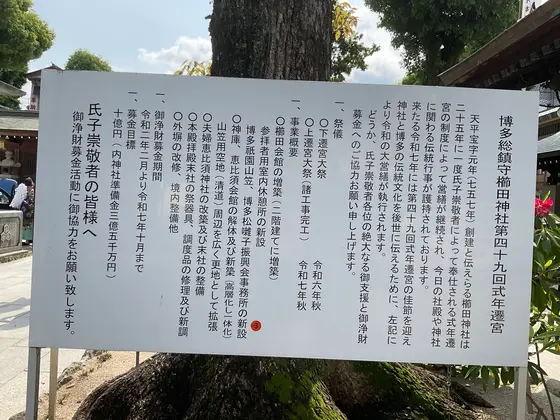 博多総鎮守櫛田神社第四十九回式年遷宮
天平宝字元年(七五七年)創建と伝えらる櫛田神社は
二十五年に一度氏子崇敬者によって奉仕される式年遷
宮の制度によって営繕が継続され、今日の社殿や神社
に関わる伝統行事が護持されております。
来たる令和七年には第四十九回式年遷宮の佳節を迎え
神社と博多の伝統文化を後世に伝えるために、左記に
より令和の大営繕が執行されます。
どうか、氏子崇敬者各位の絶大なる御支援と御浄財
募金へのご協力お願い申し上げます。
一、祭儀
〇下遷宮大祭 令和六年秋
〇上遷宮大祭(諸工事完工) 令和七年秋
一、事業概要
〇櫛田会館の増築(二階建てに増築)
参拝者用室内休憩所の新設
博多祇園山笠、博多松囃子振興会事務所の新設
〇神庫、恵比須会館の解体及び新築(高層化し一体化)
山笠用空地(清道)周辺を広く更地として拡張
〇夫婦恵比須神社の改築及び末社の整備
〇本殿拝殿末社の祭器具、調度品の修理及び新調
〇外塀の改修、境内整備他
一、御浄財募金期間
令和二年二月より令和七年十月まで
一、募金目標
十億円(内神社準備金三億五千万円)
氏子崇敬者の皆様へ
御浄財募金活動に御協力をお願い致します。